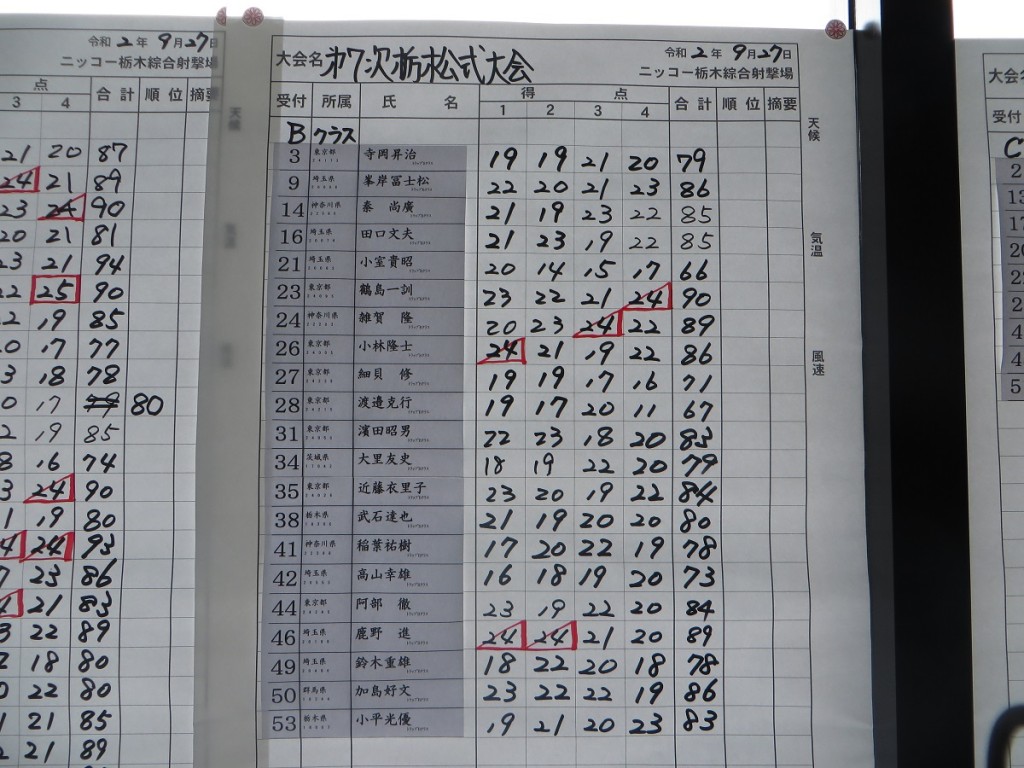 令和2年9月27日
ニッコー栃木綜合射撃場
点
3 4 合計 順位 摘要
21 20 87
24 21 89
23 24 90
20 21 81
23 21 94
22 25 90
19 85
17 77
18 78
17 79 80
19 85
16 74
24 90
19 80
24 93
23 86
21 83
22 89
18 80
22 80
21 85
21 89
大会名 オ7次栃木公式大会
令和2年9月27日
ニッコー栃木綜合射撃場
受付 所属 氏名 得点 合計 順位 摘要
1 2 3 4
Bクラス
3 東京都 寺岡昇治 19 19 21 20 79
9 埼玉県 峯岸冨士松 22 20 21 23 86
14 神奈川県 秦 尚廣 21 19 23 22 85
16 埼玉県 田口文夫 21 23 19 22 85
21 埼玉県 小室貴昭 20 14 15 17 66
23 東京都 鶴島一訓 23 22 21 24 90
24 神奈川県 雑賀 隆 20 23 24 22 89
26 東京都 小林隆士 24 21 19 22 86
27 東京都 細貝 修 19 19 17 16 71
28 東京都 渡邉克行 19 17 20 11 67
31 東京都 濱田昭男 22 23 18 20 83
34 茨城県 大里友史 18 19 22 20 79
35 東京都 近藤衣里子 23 20 19 22 84
38 栃木県 武石達也 21 19 20 20 80
41 神奈川県 稲葉祐樹 17 20 22 19 78
42 埼玉県 高山幸雄 16 18 19 20 73
44 東京都 阿部 徹 23 19 22 20 84
46 埼玉県 鹿野 進 24 24 21 20 89
49 埼玉県 鈴木重雄 18 22 20 18 78
50 群馬県 加島好文 23 22 22 19 86
53 栃木県 小平光優 19 21 20 23 83
天候
気温
風速
大会名
受付
C